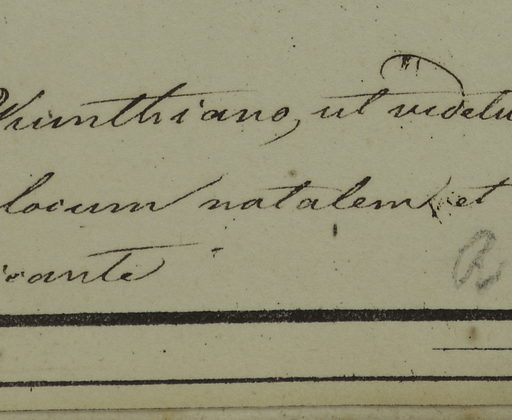 Kunthiano, ut videtu
locum natalem, et
icante
R